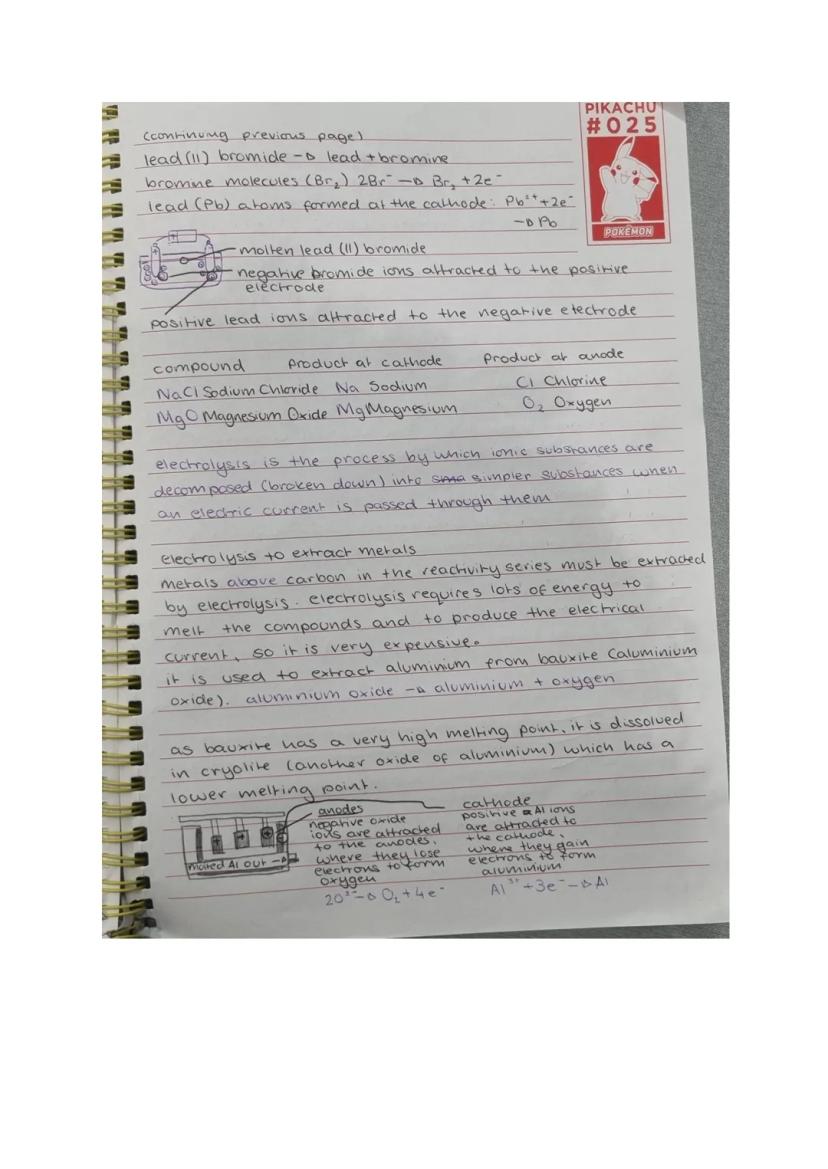 PIKACHU
#025
POKÉMON
(continuing previous page)
lead(II) bromide → lead + bromine
bromine molecules (Br₂) 2Br⁻ → Br₂ + 2e⁻
lead (Pb) atoms formed at the cathode: Pb²⁺ + 2e⁻
→ Pb
molten lead (II) bromide
negative bromide ions attracted to the positive
electrode
positive lead ions attracted to the negative electrode
compound Product at cathode Product at anode
NaCl Sodium Chloride Na Sodium Cl Chlorine
MgO Magnesium Oxide Mg Magnesium O₂ Oxygen
electrolysis is the process by which ionic substances are
decomposed (broken down) into sma simpler substances when
an electric current is passed through them
electrolysis to extract metals
metals above carbon in the reactivity series must be extracted
by electrolysis. electrolysis requires lots of energy to
melt the compounds and to produce the electrical
current, so it is very expensive.
it is used to extract aluminium from bauxite (aluminium
oxide). aluminium oxide → aluminium + oxygen
as bauxite has a very high melting point, it is dissolved
in cryolite (another oxide of aluminium) which has a
lower melting point.
anodes
negative oxide
ions are attracted
to the anodes,
where they lose
electrons to form
oxygen
2O²⁻ → O₂ + 4e⁻
cathode
positive Al ions
are attracted to
the cathode,
where they gain
electrons to form
aluminium
Al³⁺ + 3e⁻ → Al
Al out →